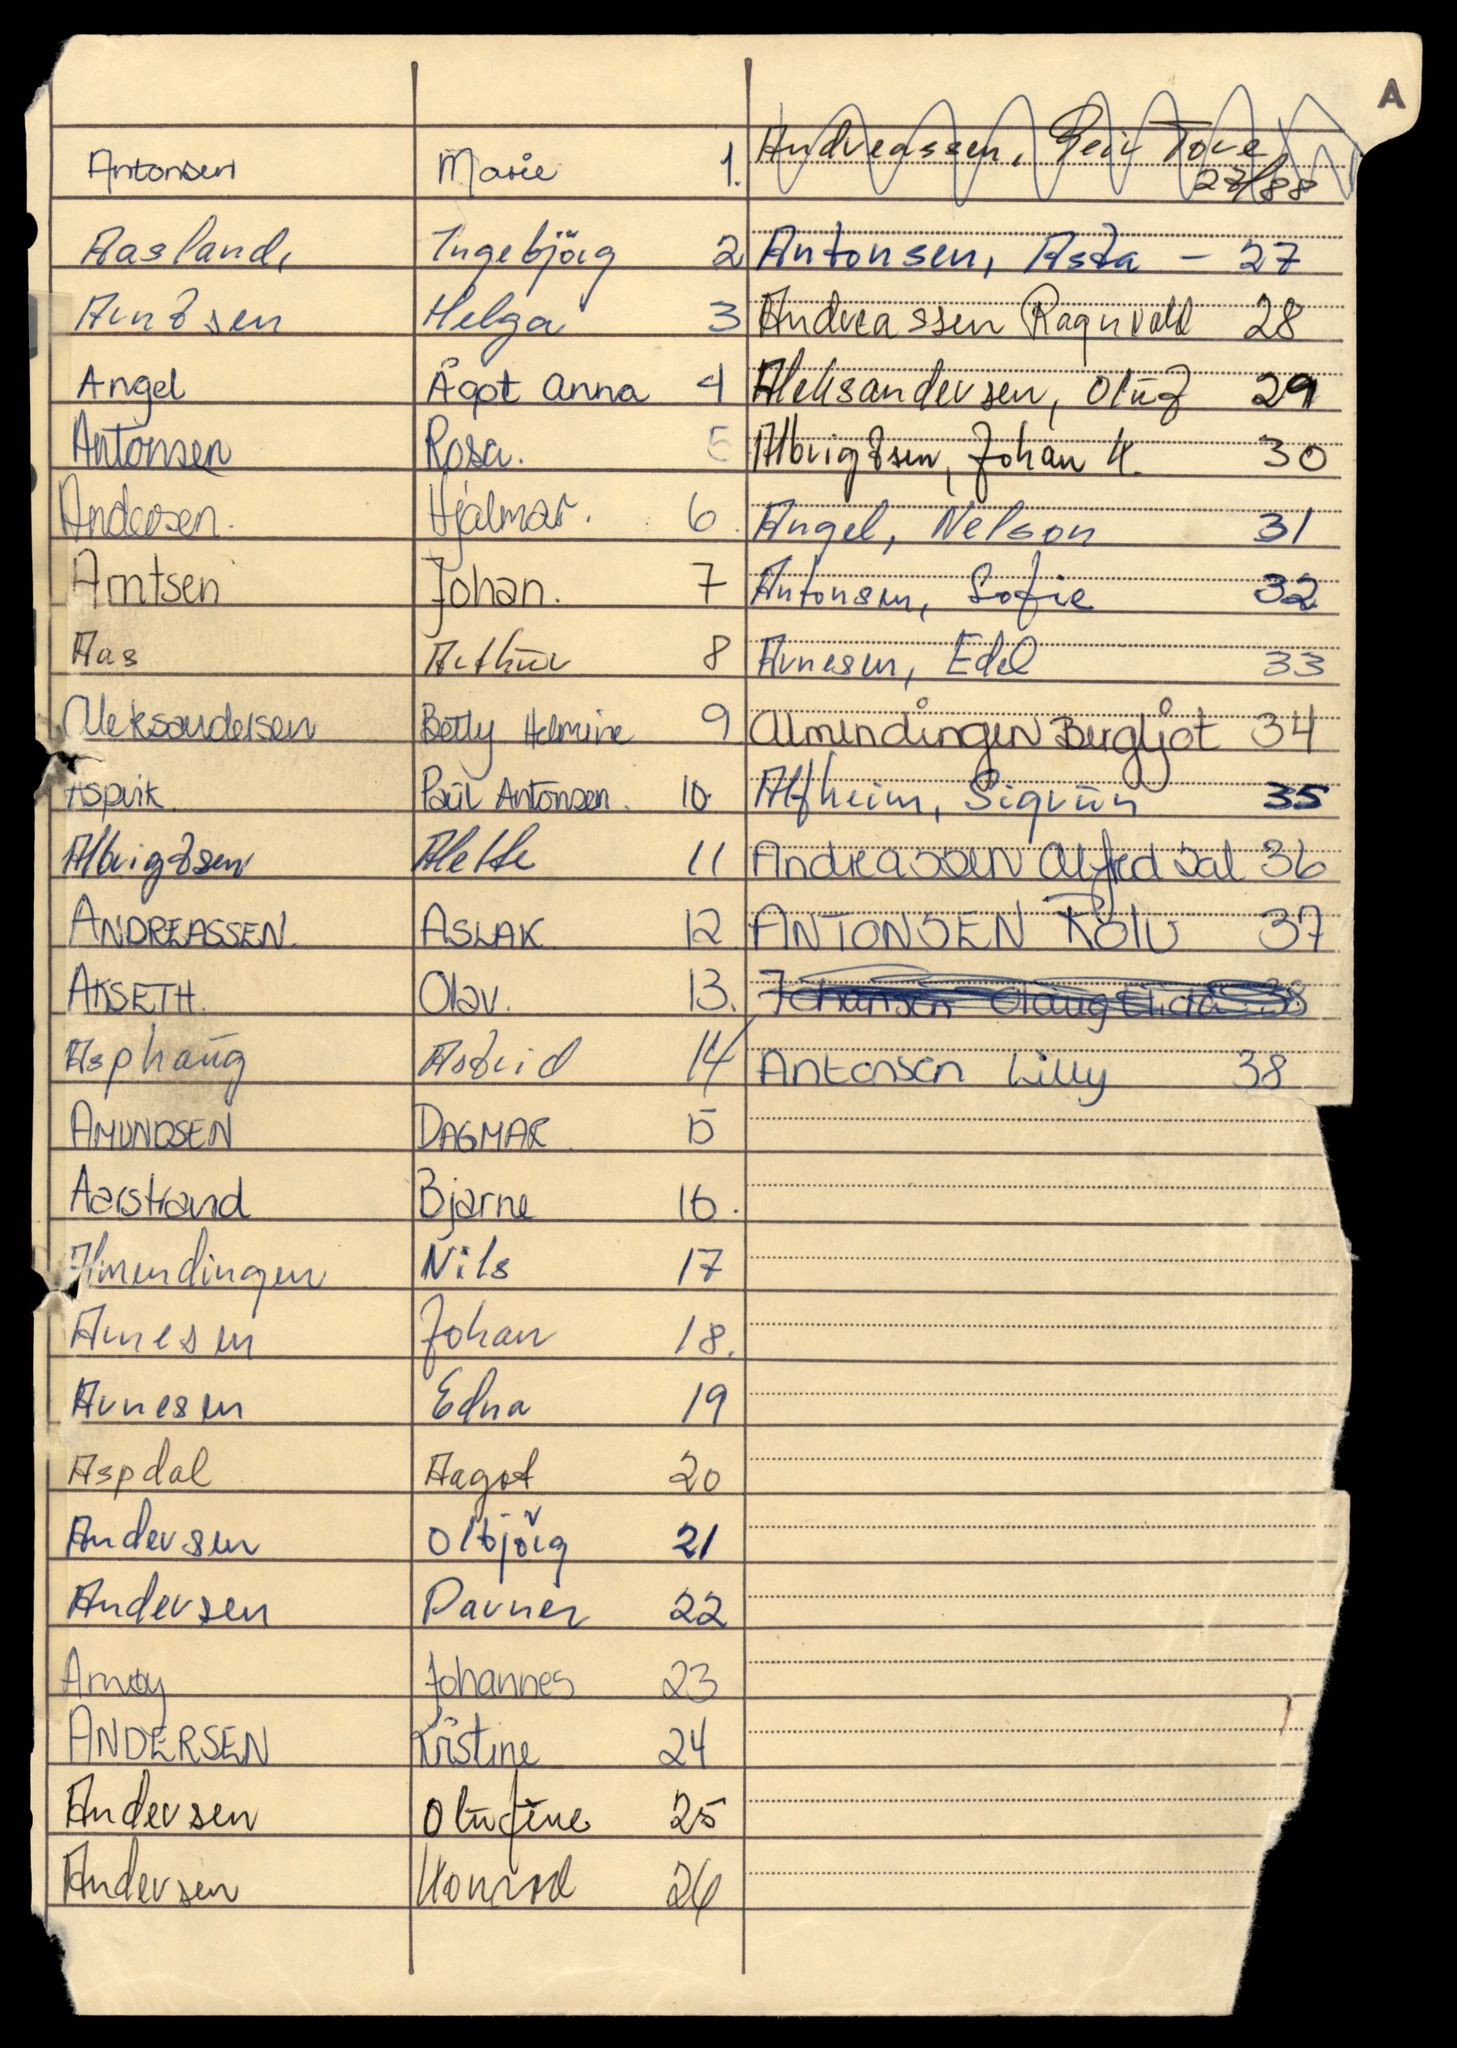 A
Antonsen Marie 1.
Aasland, Ingebjörg 2
Arntsen Helga 3
Angel Ågot Anna 4
Antonsen Rosa. 5
Andersen. Hjalmar. 6.
Arntsen Johan. 7
Aas Arthur 8
Aleksandersen Betty Helmine 9
Aspvik. Paul Antonsen. 10.
Albrigtsen Alette 11
ANDREASSEN. ASLAK 12
AKSETH. Olav. 13.
Asphaug Astrid 14
AMUNDSEN DAGMAR 15
Aarstrand Bjarne 16.
Almendingen Nils 17
Arnesen Johan 18.
Arnesen Edna 19
Aspdal Aagot 20
Andersen Olbjörg 21
Andersen 22
Arnøy Johannes 23
ANDERSEN Kristine 24
Andersen Olufine 25
Andersen Konrad 26
Andreassen, Geir Tore
27/88
Antonsen, Asta - 27
Andreassen Ragnvald 28
Aleksandersen, Oluf 29
Albrigtsen, Johan H. 30
Angel, Nelson 31
Antonsen, Sofie 32
Arnesen, Edel 33
Almendingen Bergljot 34
Alfheim, Sigrun 35
Andreassen Alfred Sal 36
ANTONSEN Rolv 37
Johansen Olaug Elida 38
Antonsen Lilly 38